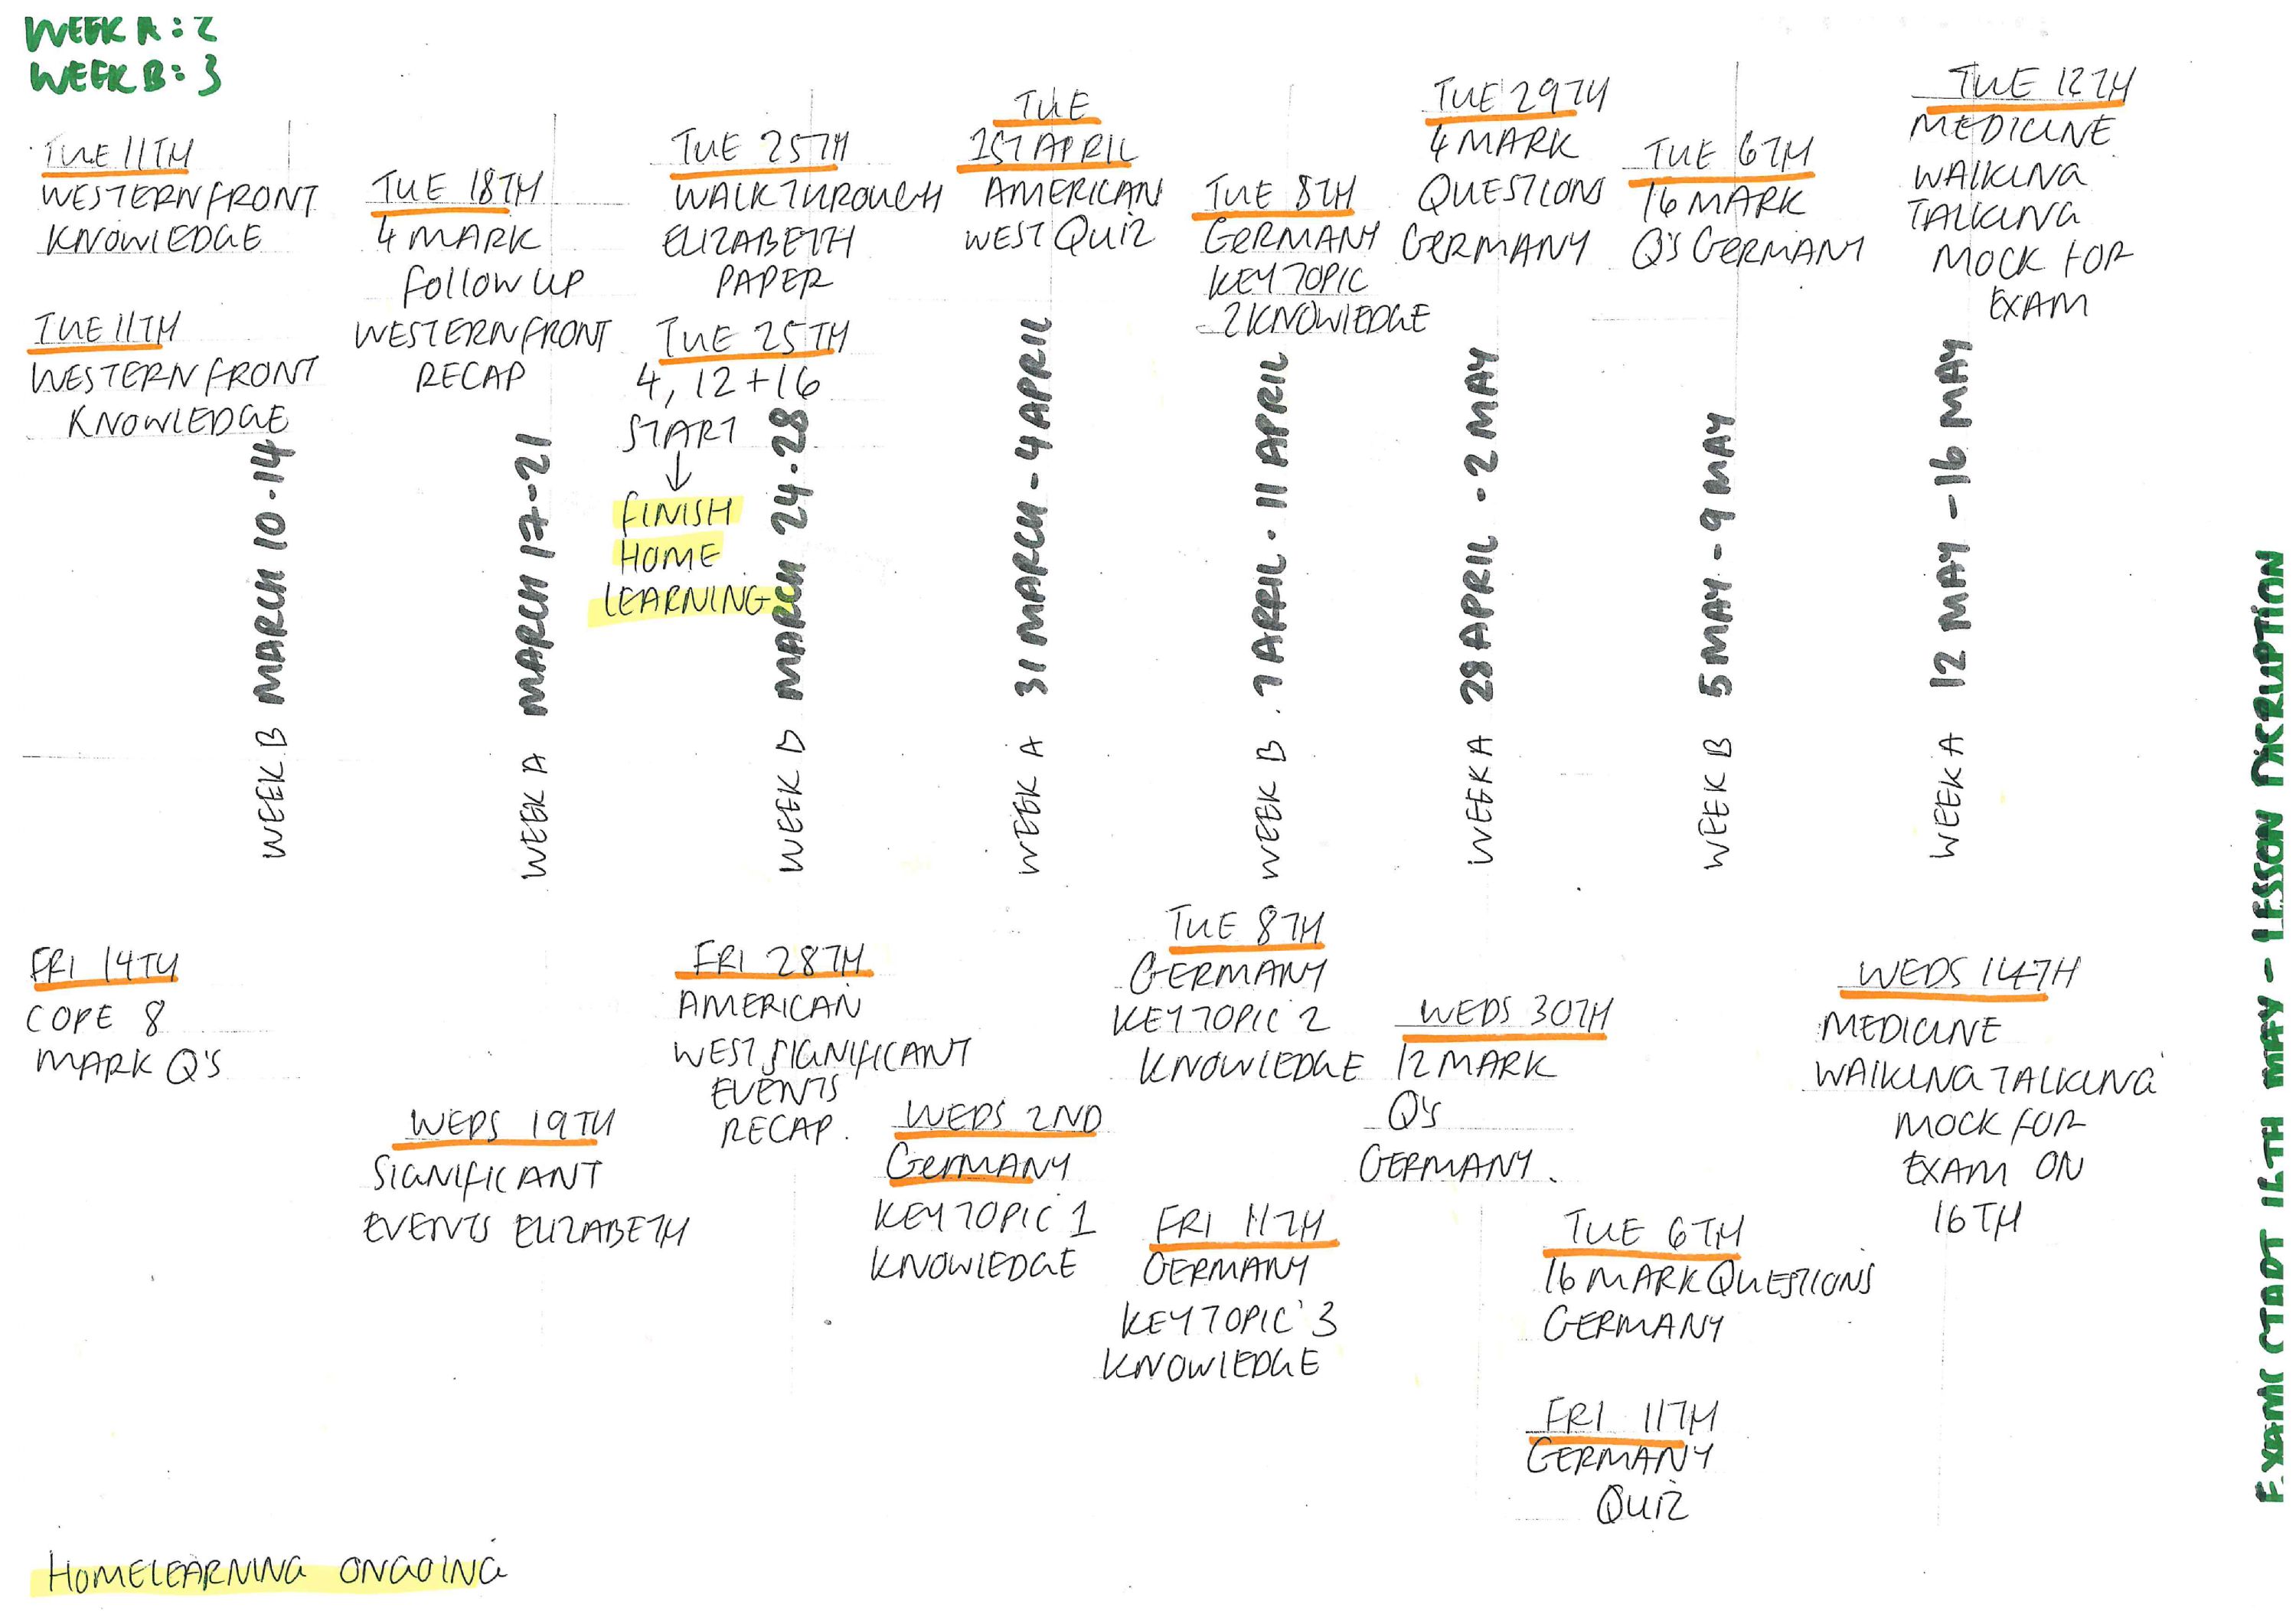 WEEK A: 2
WEEK B: 3
TUE 11TH
WESTERN FRONT
KNOWLEDGE
TUE 11TH
WESTERN FRONT
KNOWLEDGE
WEEK B MARCH 10-14
FRI 14TH
COPE 8
MARK Q'S
TUE 18TH
4 MARK
FOLLOW UP
WESTERN FRONT
RECAP
WEEK A MARCH 17-21
WEDS 19TH
SIGNIFICANT
EVENTS ELIZABETH
TUE 25TH
WALKTHROUGH
ELIZABETH
PAPER
TUE 25TH
4, 12 + 16
START
↓
FINISH
HOME
LEARNING
WEEK B MARCH 24-28
FRI 28TH
AMERICAN
WEST SIGNIFICANT
EVENTS
RECAP.
TUE
1ST APRIL
AMERICAN
WEST QUIZ
WEEK A 31 MARCH - 4 APRIL
WEDS 2ND
GERMANY
KEY TOPIC 1
KNOWLEDGE
TUE 8TH
GERMANY
KEY TOPIC
2 KNOWLEDGE
WEEK B 7 APRIL - 11 APRIL
TUE 8TH
GERMANY
KEY TOPIC 2
KNOWLEDGE
FRI 11TH
GERMANY
KEY TOPIC 3
KNOWLEDGE
TUE 29TH
4 MARK
QUESTIONS
GERMANY
WEEK A 28 APRIL - 2 MAY
WEDS 30TH
12 MARK
Q'S
GERMANY.
TUE 6TH
16 MARK
Q'S GERMANY
WEEK B 5 MAY - 9 MAY
TUE 6TH
16 MARK QUESTIONS
GERMANY
FRI 11TH
GERMANY
QUIZ
TUE 12TH
MEDICINE
WALKING
TALKING
MOCK FOR
EXAM
WEEK A 12 MAY - 16 MAY
WEDS 14TH
MEDICINE
WALKING TALKING
MOCK FOR
EXAM ON
16TH
EXAMS START 16TH MAY - LESSON DISRUPTION
HOMELEARNING ONGOING